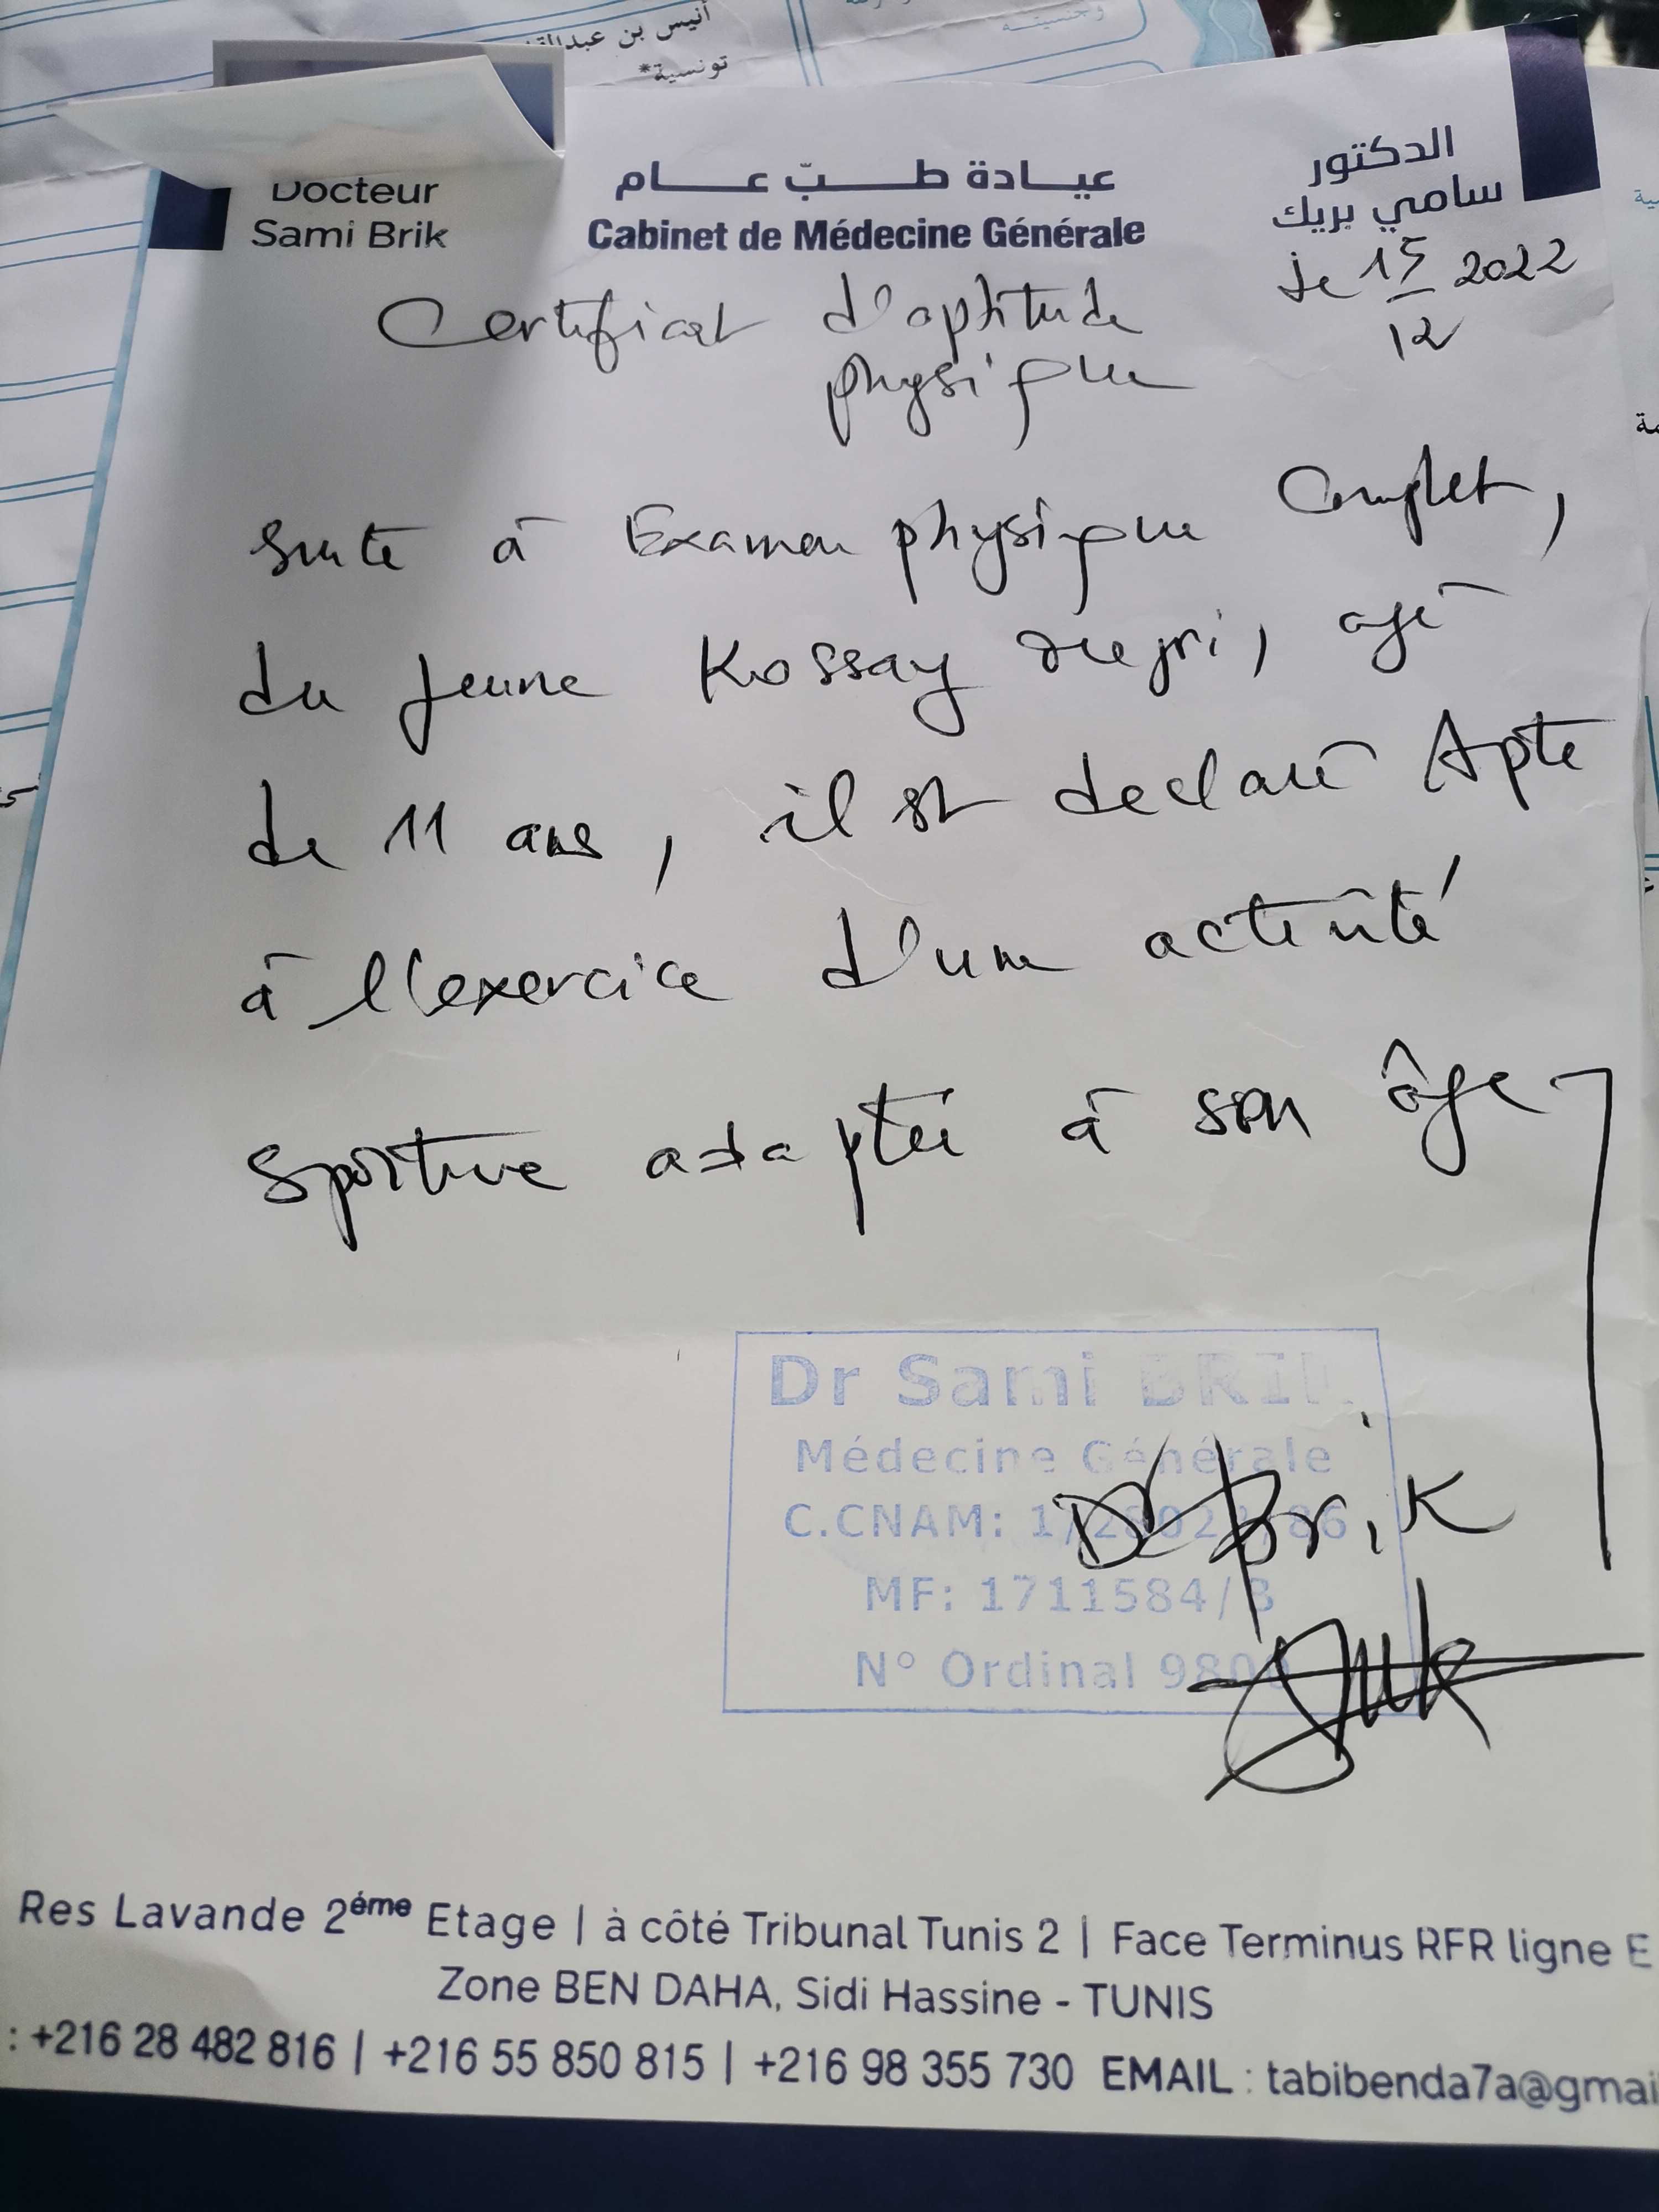 أنيس بن عبدالق
تونسية*
وجنسيته
Docteur
Sami Brik
عيادة طبّ عام
Cabinet de Médecine Générale
الدكتور
سامي بريك
le 15 2022
12
Certificat d'aptitude
physique
Suite à Examen physique Complet,
du jeune Kossay, agé
de 11 ans, il est declaré Apte
à l'exercice d'une activité
Sportive adaptée à son âge
Dr Sami BRIK
Médecine Générale
C.CNAM:
MF: 1711584/B
N° Ordinal
Dr Brik
Res Lavande 2éme Etage | à côté Tribunal Tunis 2 | Face Terminus RFR ligne E
Zone BEN DAHA, Sidi Hassine - TUNIS
: +216 28 482 816 | +216 55 850 815 | +216 98 355 730 EMAIL : tabibenda7a@gmai